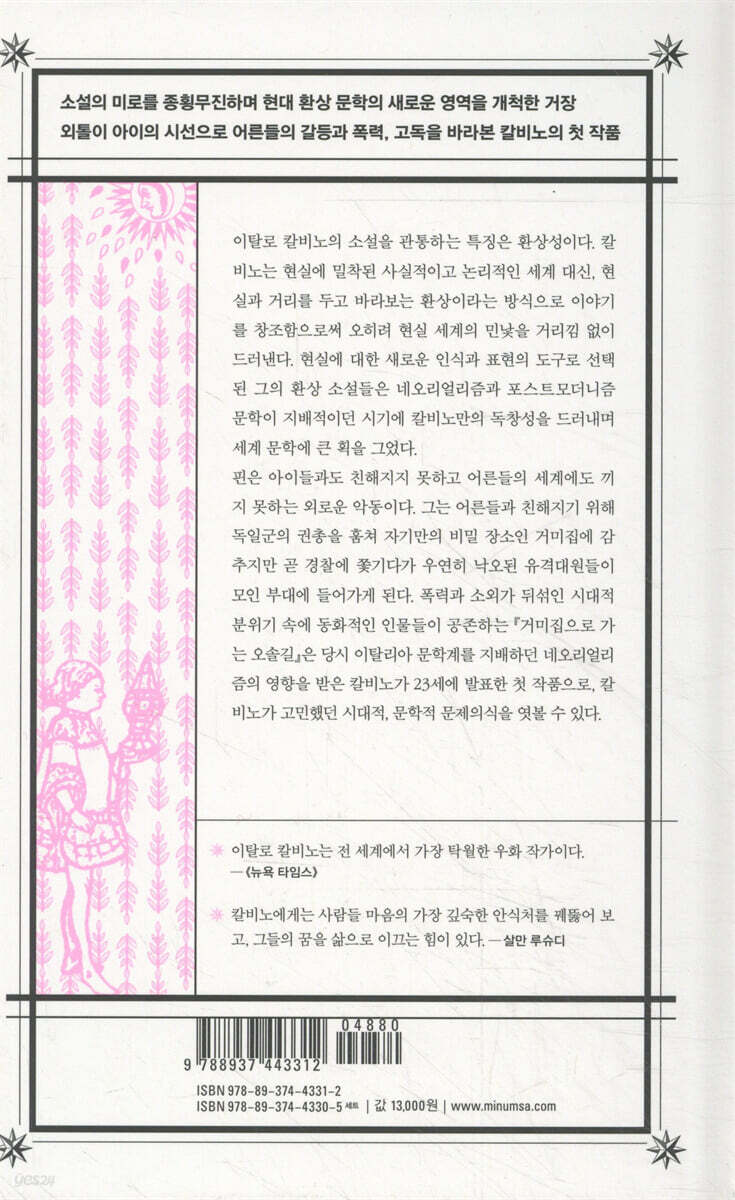 소설의 미로를 종횡무진하며 현대 환상 문학의 새로운 영역을 개척한 거장
외톨이 아이의 시선으로 어른들의 갈등과 폭력, 고독을 바라본 칼비노의 첫 작품
이탈로 칼비노의 소설을 관통하는 특징은 환상성이다. 칼
비노는 현실에 밀착된 사실적이고 논리적인 세계 대신, 현
실과 거리를 두고 바라보는 환상이라는 방식으로 이야기
를 창조함으로써 오히려 현실 세계의 민낯을 거리낌 없이
드러낸다. 현실에 대한 새로운 인식과 표현의 도구로 선택
된 그의 환상 소설들은 네오리얼리즘과 포스트모더니즘
문학이 지배적이던 시기에 칼비노만의 독창성을 드러내며
세계 문학에 큰 획을 그었다.
핀은 아이들과도 친해지지 못하고 어른들의 세계에도 끼
지 못하는 외로운 악동이다. 그는 어른들과 친해지기 위해
독일군의 권총을 훔쳐 자기만의 비밀 장소인 거미집에 감
추지만 곧 경찰에 쫓기다가 우연히 낙오된 유격대원들이
모인 부대에 들어가게 된다. 폭력과 소외가 뒤섞인 시대적
분위기 속에 동화적인 인물들이 공존하는 『거미집으로 가
는 오솔길』은 당시 이탈리아 문학계를 지배하던 네오리얼리
즘의 영향을 받은 칼비노가 23세에 발표한 첫 작품으로, 칼
비노가 고민했던 시대적, 문학적 문제의식을 엿볼 수 있다.
이탈로 칼비노는 전 세계에서 가장 탁월한 우화 작가이다.
—《뉴욕 타임스》
칼비노에게는 사람들 마음의 가장 깊숙한 안식처를 꿰뚫어 보
고, 그들의 꿈을 삶으로 이끄는 힘이 있다. —살만 루슈디
04880
9 788937 443312
ISBN 978-89-374-4331-2
ISBN 978-89-374-4330-5 세트 | 값 13,000원 | www.minumsa.com
yes24